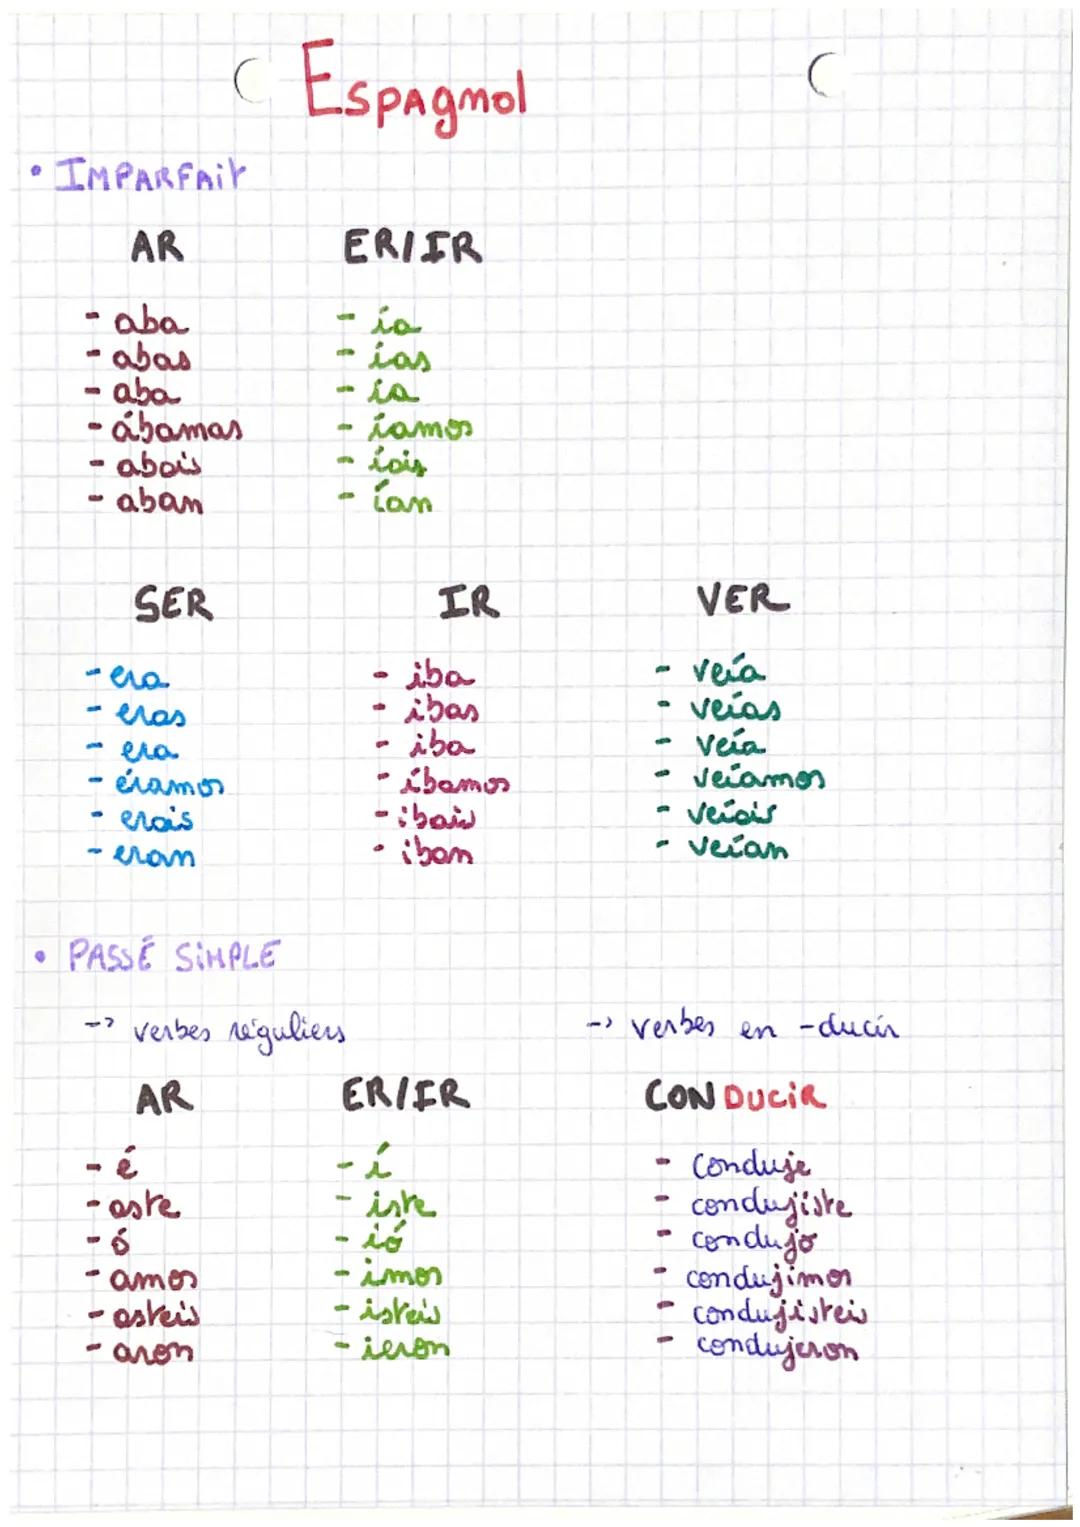 Espagnol
• IMPARFAIT
AR ER/IR
- aba - ía
- abas - ías
- aba - ía
- ábamas - íamos
- abais - íais
- aban - ían
SER IR VER
- era - iba - veía
- eras - ibas - veías
- era - iba - veía
- éramos - íbamos - veíamos
- erais - ibais - veíais
- eran - iban - veían
• PASSÉ SIMPLE
-> verbes réguliers -> verbes en -ducir
AR ER/IR CONDUCIR
- é - í - conduje
- aste - iste - condujiste
- ó - ió - condujo
- amos - imos - condujimos
- asteis - isteis - condujisteis
- aron - ieron - condujeron